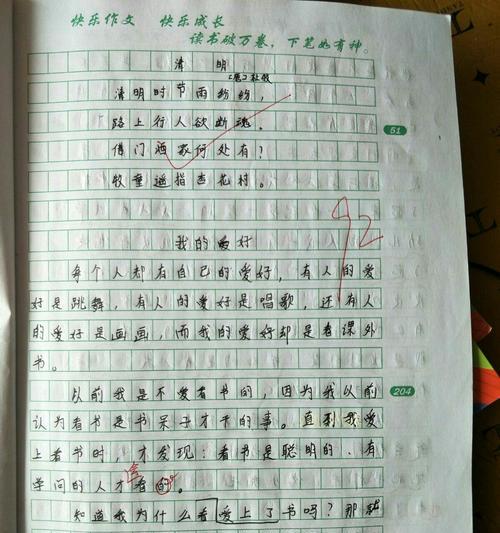 快乐作文 快乐成长
读书破万卷，下笔如有神。
清 明
(唐)杜牧
清明时节雨纷纷，
路上行人欲断魂。
借门酒家何处有？
牧童遥指杏花村。
51
92
我的爱好
每个人都有自己的爱好，有人的爱
好是跳舞，有人的爱好是唱歌，还有人
的爱好是画画，而我的爱好却是看课外
书。
以前我是不爱看书的，因为我以前
204
认为看书是书呆子才干的事。直到我爱
上看书时，才发现：看书是聪明的、有
学问的人才会看的。
知道我为什么看爱上了书吗？那就